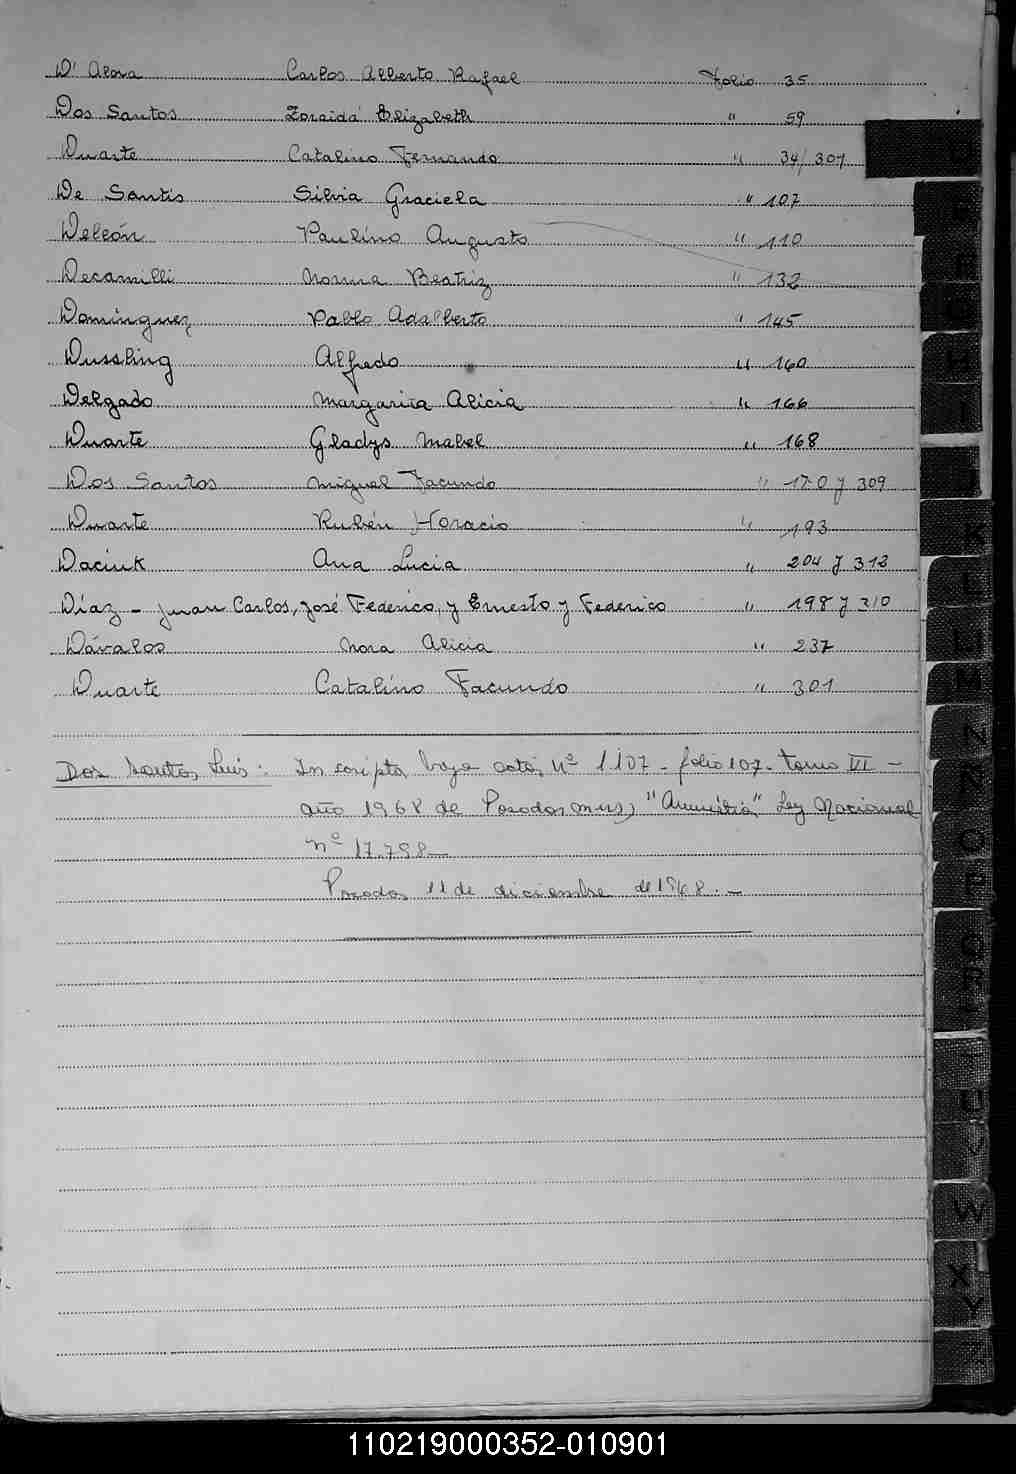 D' Alova Carlos Alberto Rafael Folio 35
Dos Santos Zoraida Elizabeth " 59
Duarte Catalino Fernando " 34/307
De Santis Silvia Graciela " 107
Deleón Paulino Augusto " 110
Decamilli Norma Beatriz " 132
Dominguez Pablo Adalberto " 145
Dussling Alfredo " 160
Delgado Margarita Alicia " 166
Duarte Gladys Mabel " 168
Dos Santos Miguel Facundo " 170 y 309
Duarte Rubén Horacio " 193
Daciuk Ana Lucia " 204 y 313
Díaz - Juan Carlos, José Federico, y Ernesto y Federico " 198 y 310
Dávalos Nora Alicia " 237
Duarte Catalino Facundo " 301
Dos Santos, Luis: Inscripto bajo acta nº 1.107 - folio 107 - tomo VI -
año 1968 de Posadas Mnes, "Amnistia" Ley Nacional
nº 17.798 -
Posadas 11 de diciembre de 1968. -
H
I
J
K
L
N
Ñ
O
P
Q
R
U
V
W
X
Y
110219000352-010901